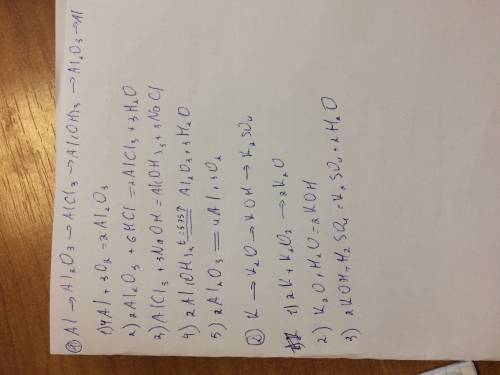 ① Al → Al₂O₃ → AlCl₃ → Al(OH)₃ → Al₂O₃ → Al
1) 4Al + 3O₂ = 2Al₂O₃
2) Al₂O₃ + 6HCl → 2AlCl₃ + 3H₂O
3) AlCl₃ + 3NaOH = Al(OH)₃ + 3NaCl
4) 2Al(OH)₃ t=575° Al₂O₃ + 3H₂O
5) 2Al₂O₃ = 4Al + 3O₂
② K → K₂O → KOH → K₂SO₄
1) 2K + K₂O₂ → 2K₂O
2) K₂O + H₂O = 2KOH
3) 2KOH + H₂SO₄ = K₂SO₄ + 2H₂O